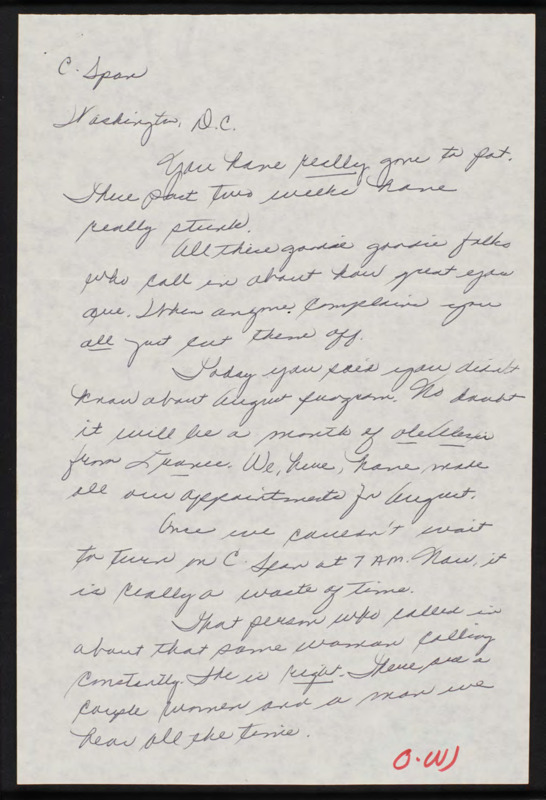 C. Span
Washington, D.C.
You have really gone to pot.
These past two weeks have
really stunk.
All these goodie goodie folks
who call in about how great you
are. When anyone complains you
all just cut them off.
Today you said you didn't
know about August program. No doubt
it will be a month of
from France. We, here, have made
all our appointments for August.
Once we couldn't wait
to turn on C. Span at 7 AM. Now, it
is really a waste of time.
That person who called in
about that same woman calling
constantly. She is right. There are a
couple women and a man we
hear all the time.
O.W)